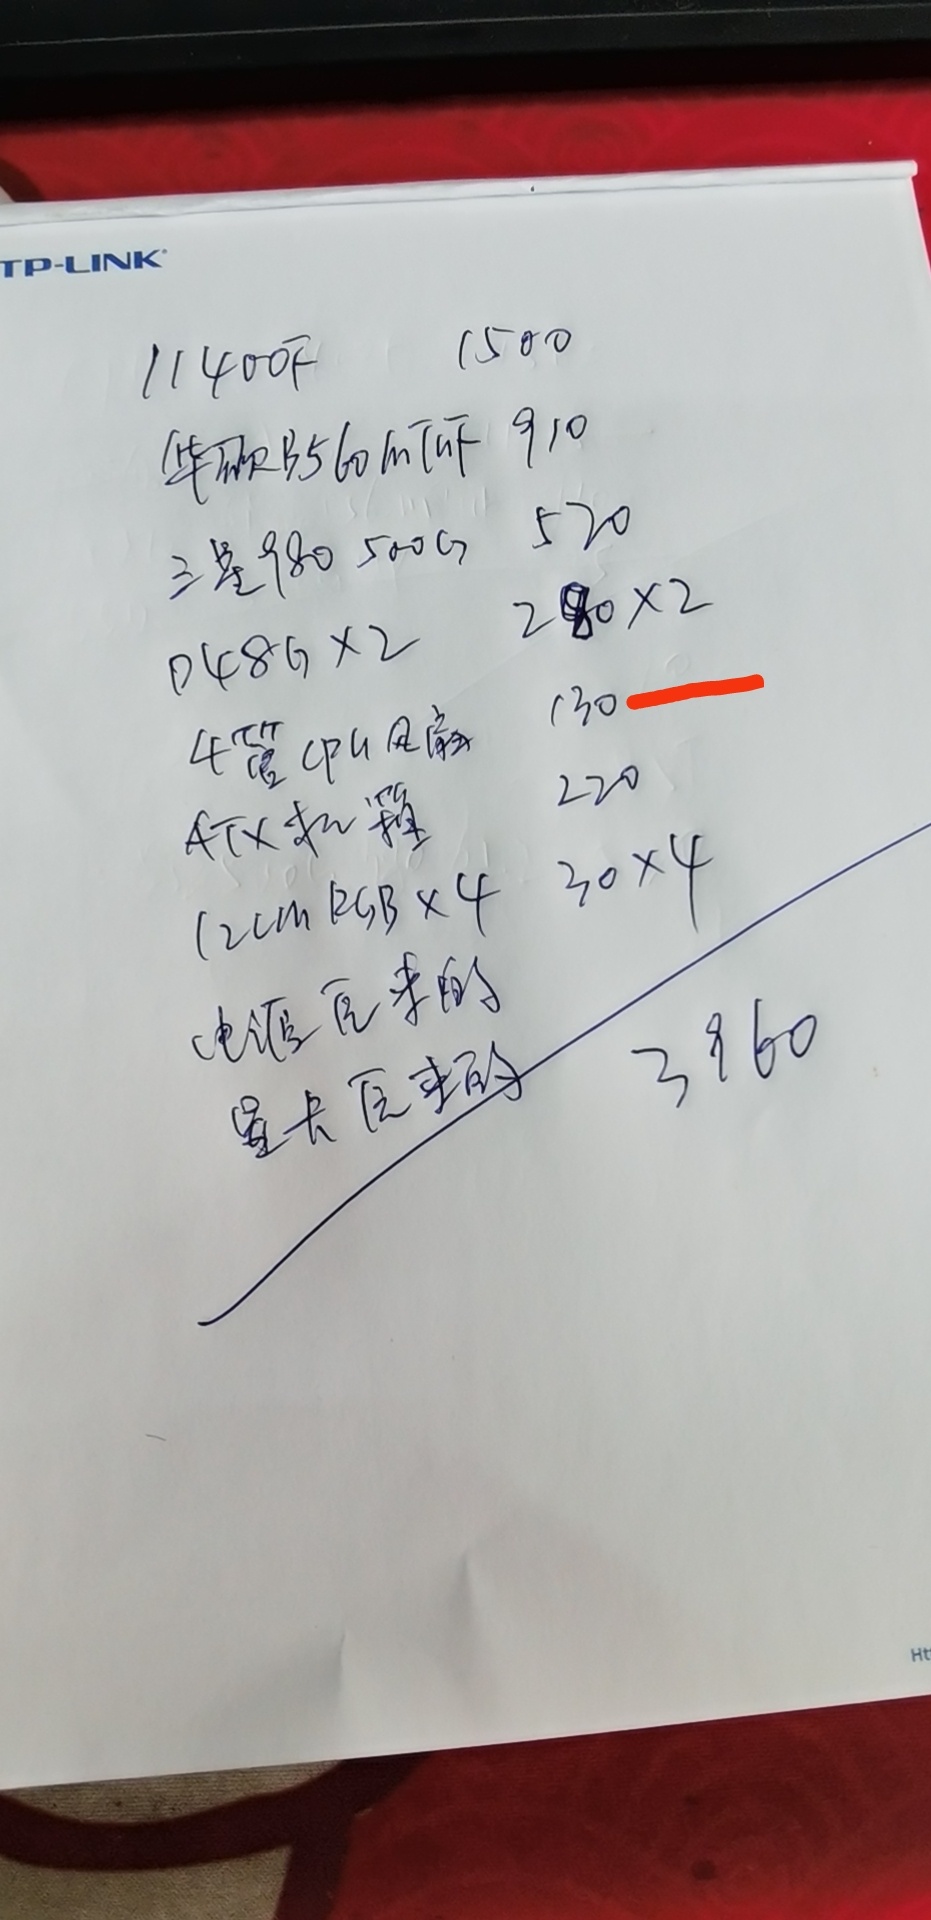 TP-LINK
11400F 1500
华硕B560m TUF 910
三星980 500G 520
D48G×2 280×2
4管CPU风扇 130
ATX机箱 220
12cm RGB×4 30×4
电源原来的
显卡原来的
3960
Htt